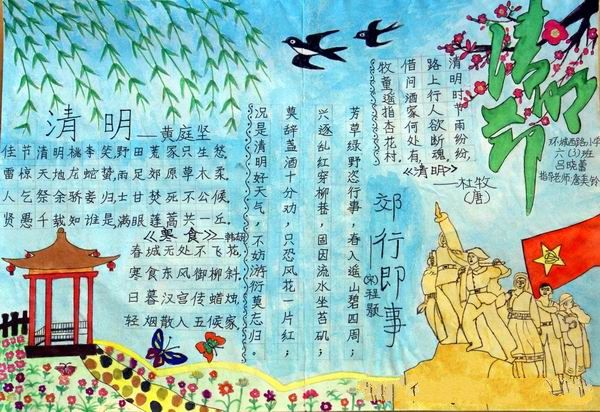 清明节
环城西路小学
六(1)班
吕晓蕾
指导老师:唐美铃
清明时节雨纷纷,
路上行人欲断魂。
借问酒家何处有,
牧童遥指杏花村。
《清明》
—杜牧
(唐)
郊行即事
(宋)程颢
芳草绿野恣行事,春入遥山碧四周;
兴逐乱红穿柳巷,固因流水坐苔矶;
莫辞盏酒十分劝,只恐风花一片红;
况是清明好天气,不妨游衍莫忘归。
清明——黄庭坚
佳节清明桃李笑,野田荒冢只生愁。
雷惊天地龙蛇蛰,雨足郊原草木柔。
人乞祭余骄妾归,士甘焚死不公候。
贤愚千载如谁是,满眼蓬蒿共一丘。
《寒食》——韩翃
春城无处不飞花,
寒食东风御柳斜。
日暮汉宫传蜡烛,
轻烟散入五候家。